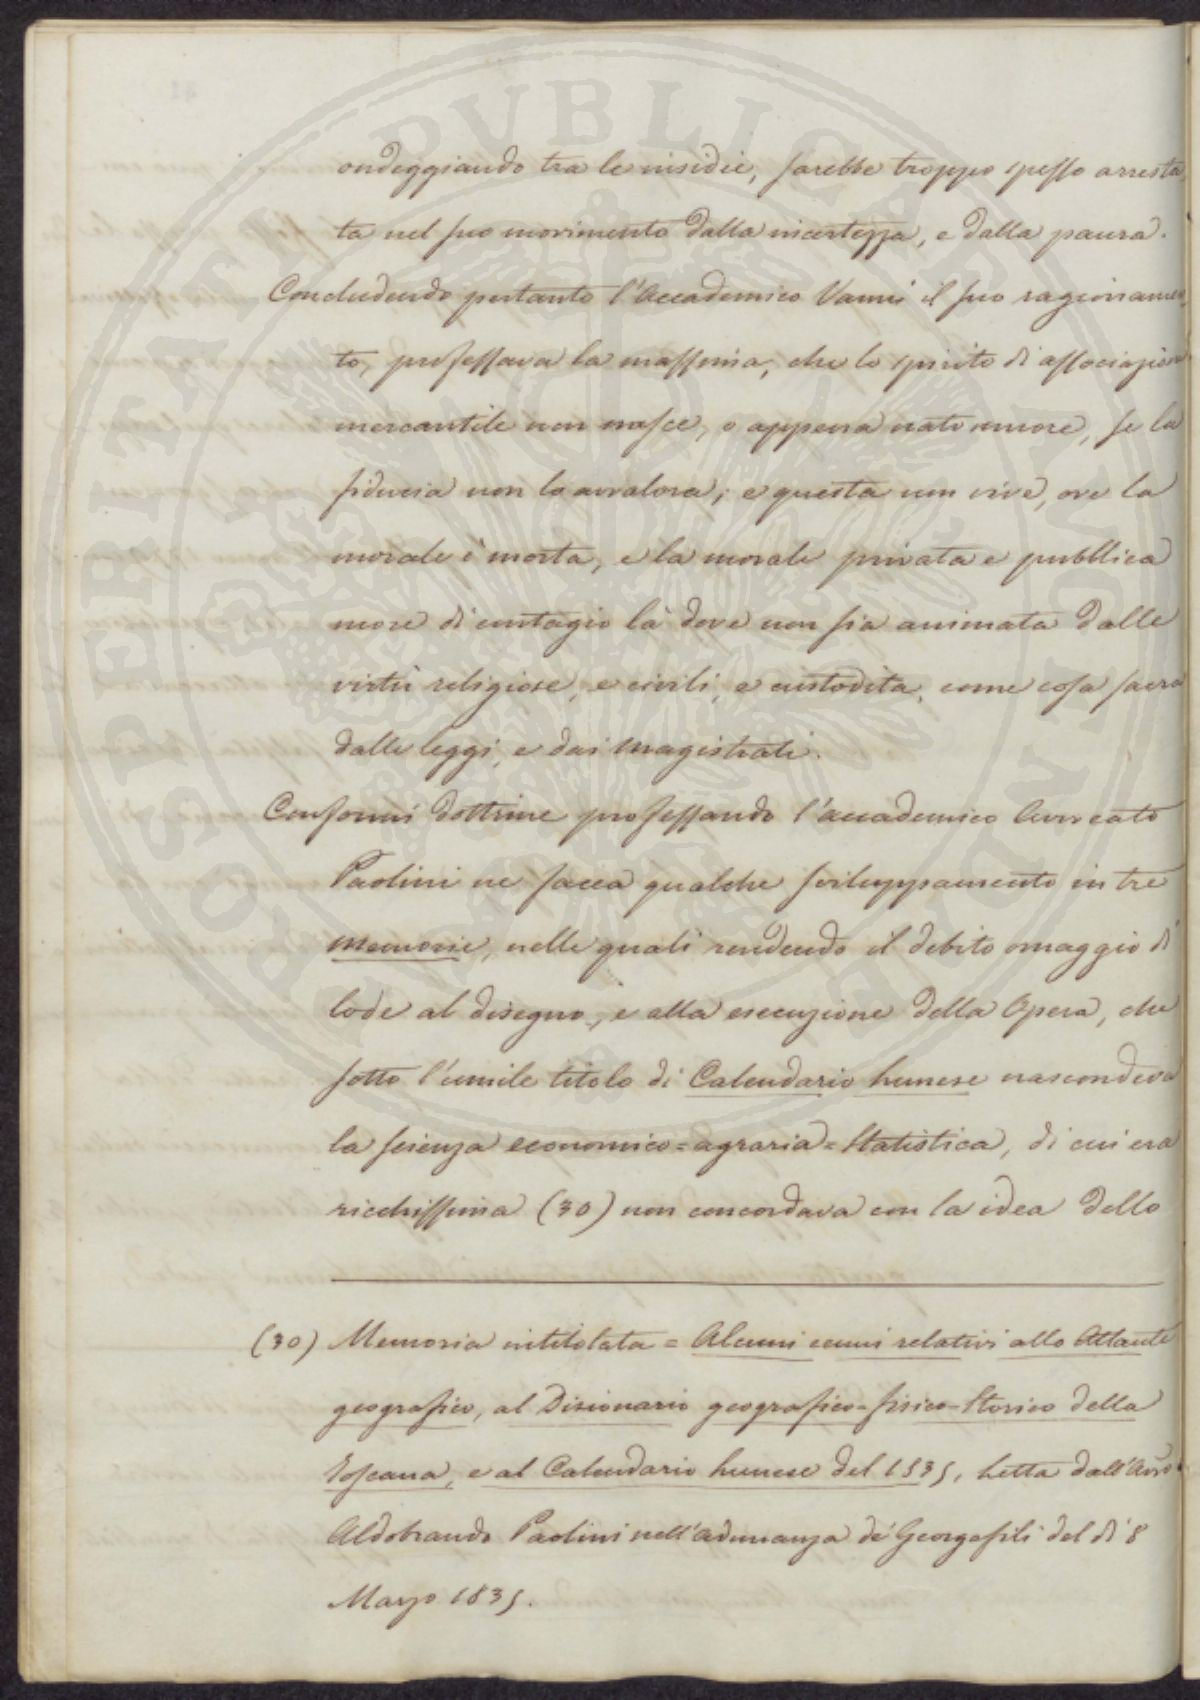 PROSPERITATI PUBLICAE AUGENDAE
ondeggiando tra le insidie, sarebbe troppo spesso arresta
ta nel suo movimento dalla incertezza, e dalla paura.
Concludendo pertanto l'Accademico Vanni il suo ragionamen
to, professava la massima, che lo spirito di associazione
mercantile non nasce, o appena nato muore, se la
fiducia non lo avvalora; e questa non vive, ove la
morale è morta, e la morale privata e pubblica
more di contagio là dove non sia animata dalle
virtù religiose, e civili, e custodita, come cosa sacra
dalle leggi, e dai Magistrati.
Conformi dottrine professando l'accademico Avvocato
Paolini ne facea qualche sviluppamento in tre
memorie, nelle quali rendendo il debito omaggio di
lode al disegno, e alla esecuzione della Opera, che
sotto l'umile titolo di Calendario lunese nascondeva
la scienza economico=agraria=Statistica, di cui era
ricchissima (30) non concordava con la idea dello
(30) Memoria intitolata = Alcuni cenni relativi allo Atlante
geografico, al Dizionario geografico-fisico-Storico della
Toscana, e al Calendario lunese del 1835, Letta dall'Avv.
Aldobrando Paolini nell'adunanza de' Georgofili del dì 8
Marzo 1835.